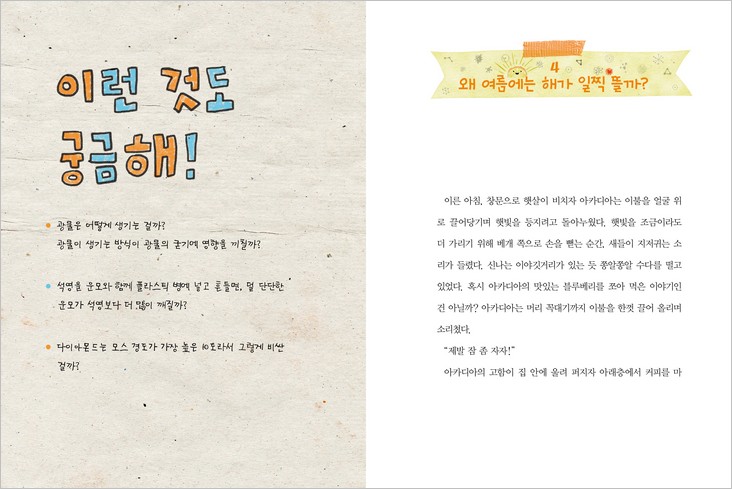 이런 것도
궁금해!
광물은 어떻게 생기는 걸까?
광물이 생기는 방식이 광물의 굳기에 영향을 끼칠까?
석영을 운모와 함께 플라스틱 병에 넣고 흔들면, 덜 단단한
운모가 석영보다 더 많이 깨질까?
다이아몬드는 모스 경도가 가장 높은 10도라서 그렇게 비싼
걸까?
4
왜 여름에는 해가 일찍 뜰까?
이른 아침, 창문으로 햇살이 비치자 아카디아는 이불을 얼굴 위
로 끌어당기며 햇빛을 등지려고 돌아누웠다. 햇빛을 조금이라도
더 가리기 위해 베개 쪽으로 손을 뻗는 순간, 새들이 지저귀는 소
리가 들렸다. 신나는 이야깃거리가 있는 듯 쫑알쫑알 수다를 떨고
있었다. 혹시 아카디아의 맛있는 블루베리를 쪼아 먹은 이야기인
건 아닐까? 아카디아는 머리 꼭대기까지 이불을 한껏 끌어 올리며
소리쳤다.
“제발 잠 좀 자자!”
아카디아의 고함이 집 안에 울려 퍼지자 아래층에서 커피를 마